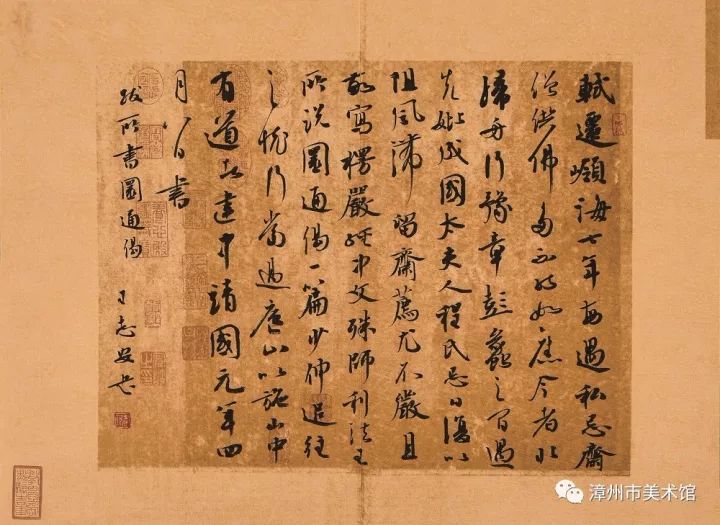 軾遷嶺海七年每遇私忌齋
僧供佛多不能如舊今者北
歸舟行豫章彭蠡之間遇
先妣成國太夫人程氏忌日復以
阻風滯留齋薦尤不嚴且
敬寫楞嚴經中文殊師利法王
所說圓通偈一篇少伸追往
之懷行當過廬山以施山中
有道者建中靖國元年四
月八日書
跋所書圓通偈
漳州市美术馆